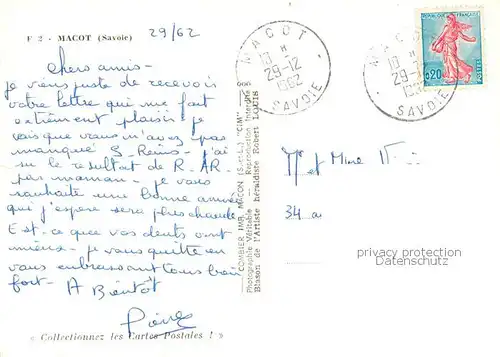 F 2 - MACOT (Savoie)
29/62
Chers amis -
je viens juste de recevoir
votre lettre qui me fait
extrêment plaisir je
vais que vous m'avez pas
manqué S - Reims - j'ai
su le resultat de R - AR -
pas maman - je vous
souhaite une bonne année
qui j'espère sera plus chaude
Est - ce que vos dents vont
mieux - je vous quitte en
vous embrassant tous bien
fort - A Bientôt
Pierre
« Collectionnez les Cartes Postales ! »
"COMBIER IMP. MACON (S.-et-L.) "CIM"
Photographie Véritable - Reproduction interdite
Blason de l'Artiste héraldiste Robert LOUIS
MACOT
10 H
29-12
1962
SAVOIE
10 H
SAVOIE
REPUBLIQUE FRANCAISE
0,20
POSTES
Mr et Mme
34
privacy protection
Datenschutz